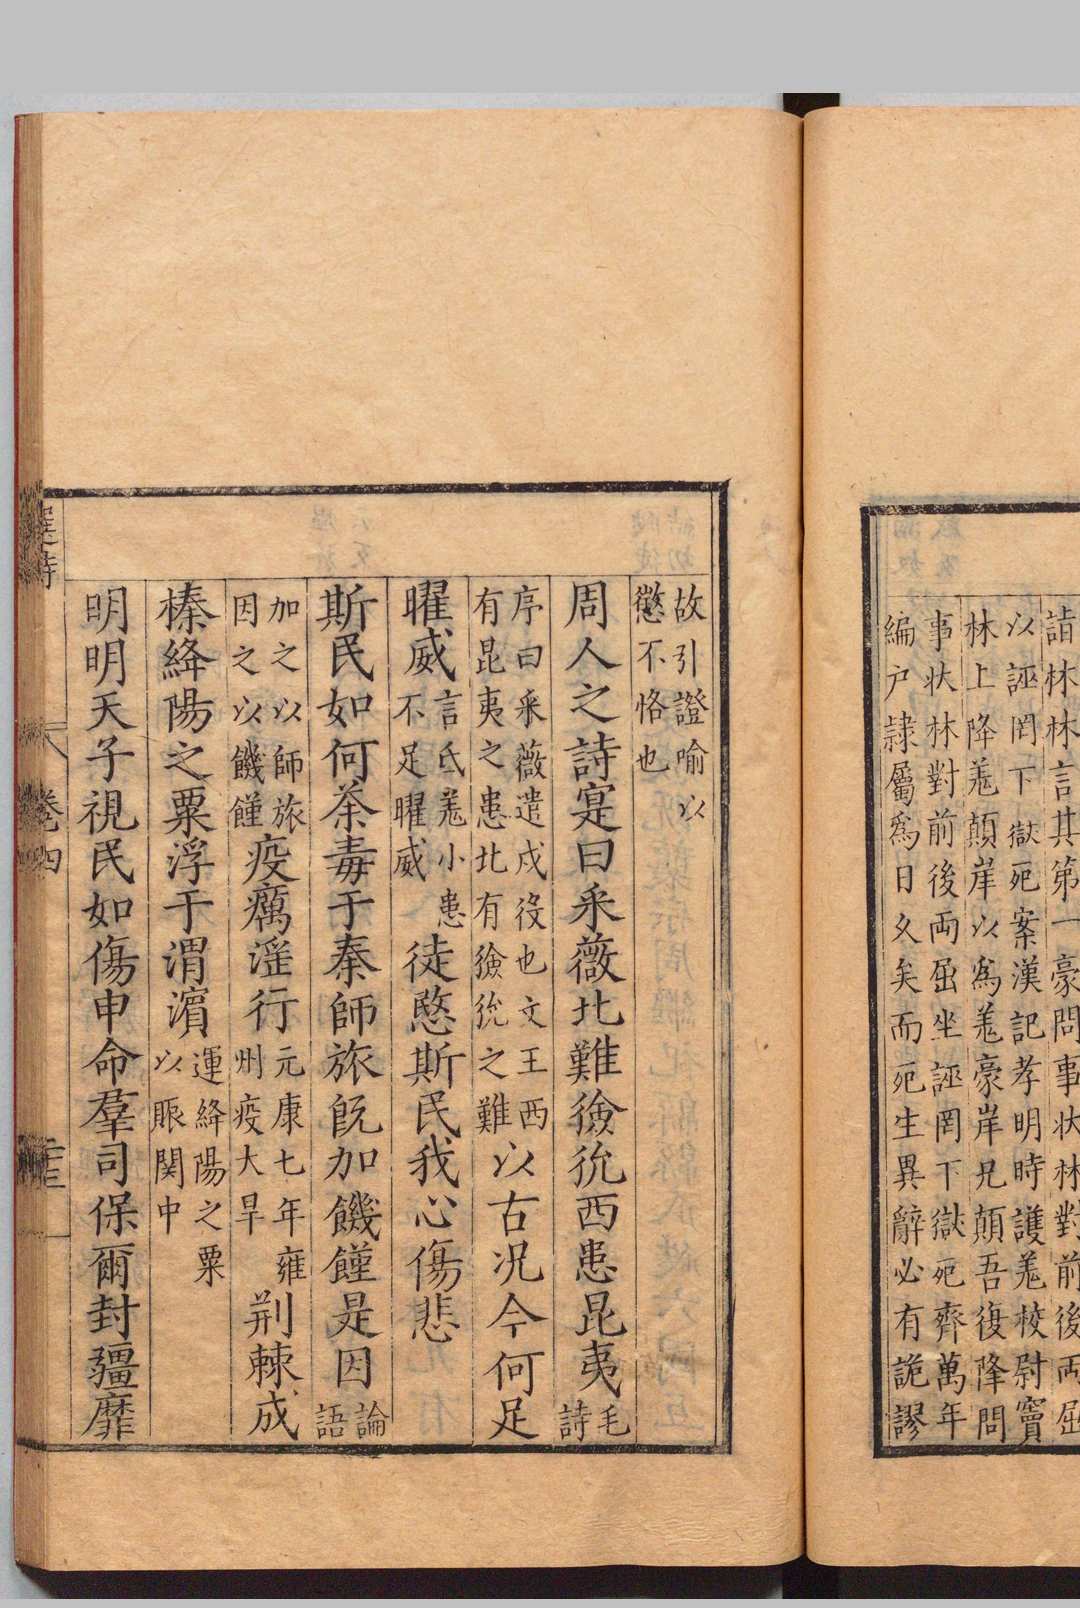 詣林林言其第一豪問事状林對前後兩屈
以誣罔下獄死案漢記孝明時護羌校尉竇
林上降羌顛岸以為羌豪岸兄顛吾復降問
事状林對前後兩屈坐誣罔下獄死齊萬年
編户隷屬為日久矣而死生異辭必有詭謬
故引證喻以
懲不恪也
周人之詩寔曰采薇北難獫狁西患昆夷毛詩
序曰采薇遣戍役也文王西有昆夷之患北有獫狁之難以古况今何足
曜威言氐羌小患不足曜威徒愍斯民我心傷悲
斯民如何荼毒于秦師旅既加饑饉是因論語
加之以師旅因之以饑饉疫癘滛行元康七年雍州疫大旱荆棘成
榛絳陽之粟浮于渭濵運絳陽之粟以賑関中
明明天子視民如傷申命羣司保爾封疆靡
選詩
卷四